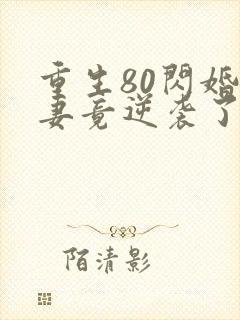 重生80閃婚
妻竟逆袭了
陌清影